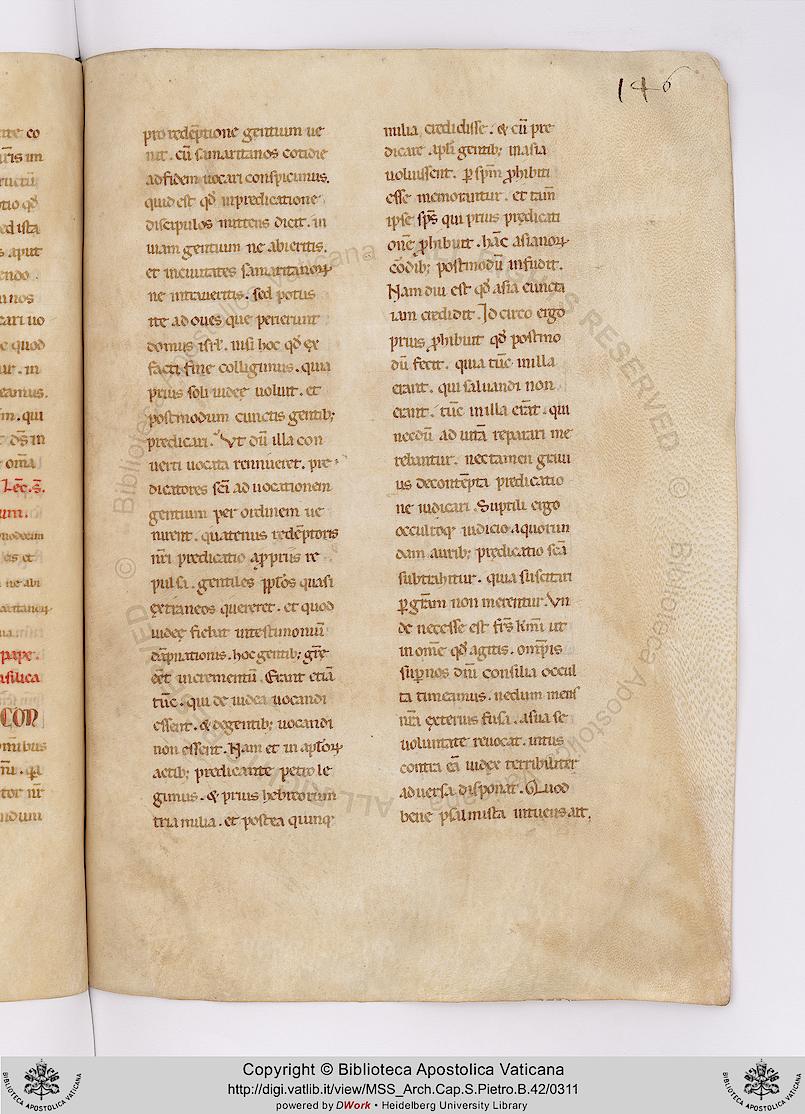 146
pro redēptione gentium ue
nit . cū samaritanos cotidie
ad fidem uocari conspicimus.
quid est qđ in predicatione
discipulos mittens dicit . in
uiam gentium ne abieritis.
et in ciuitates samaritanoꝝ
ne intraueritis . sed potius
ite ad oues que perierunt
domus isrł . nisi hoc qđ ex
facti fine colligimus . quia
prius soli iudeę uoluit . et
postmodum cunctis gentib;
predicari . Vt dū illa con
uerti uocata rennueret . pre
dicatores sc̄i ad uocationem
gentium per ordinem ue
nirent . quatenus redēptoris
nr̄i predicatio a ꝓpriis re
pulsa . gentiles pplōs quasi
extraneos quereret . et quod
iudeę fiebat in testimoniū
dāpnationis . hoc gentib; grē
eēt incrementū . Erant etiā
tūc . qui de iudea uocandi
essent . & de gentib; uocandi
non essent . Nam et in aplōꝝ
actib; predicante petro le
gimus . & prius hebreorum
tria milia . et postea quinq;
milia credidisse . & cū pre
dicare apłi gentib; in asia
uoluissent . ꝑ spm̄ ꝓhibiti
esse memorantur . et tam̄
ipse sps̄ qui prius prędicati
onē ꝓhibuit . hāc asianoꝝ
cōdib; postmodū infudit .
Nam diu est qđ asia cuncta
iam credidit . Id circo ergo
prius ꝓhibuit qđ postmo
dū fecit . quia tūc in illa
erant . qui saluandi non
erant . tūc in illa erāt . qui
necdū ad uitā reparari me
rebantur . nec tamen graui
us de contēpta predicatio
ne iudicari . Suptili ergo
occultoq; iudicio a quorun
dam aurib; prędicatio sc̄a
subtrahitur . quia suscitari
ꝑ grām non merentur . Vn
de necesse est frs̄ km̄i ut
in omē qđ agitis . om̄pis
sup̄nos dn̄i consilia occul
ta timeamus . ne dum mens
nr̄a exterius fusa . a sua se
uoluntate reuocat . intus
contra eā iudex terribiliter
aduersa disponat . Quod
bene psalmista intuens ait .
Copyright © Biblioteca Apostolica Vaticana
http://digi.vatlib.it/view/MSS_Arch.Cap.S.Pietro.B.42/0311
powered by DWork • Heidelberg University Library